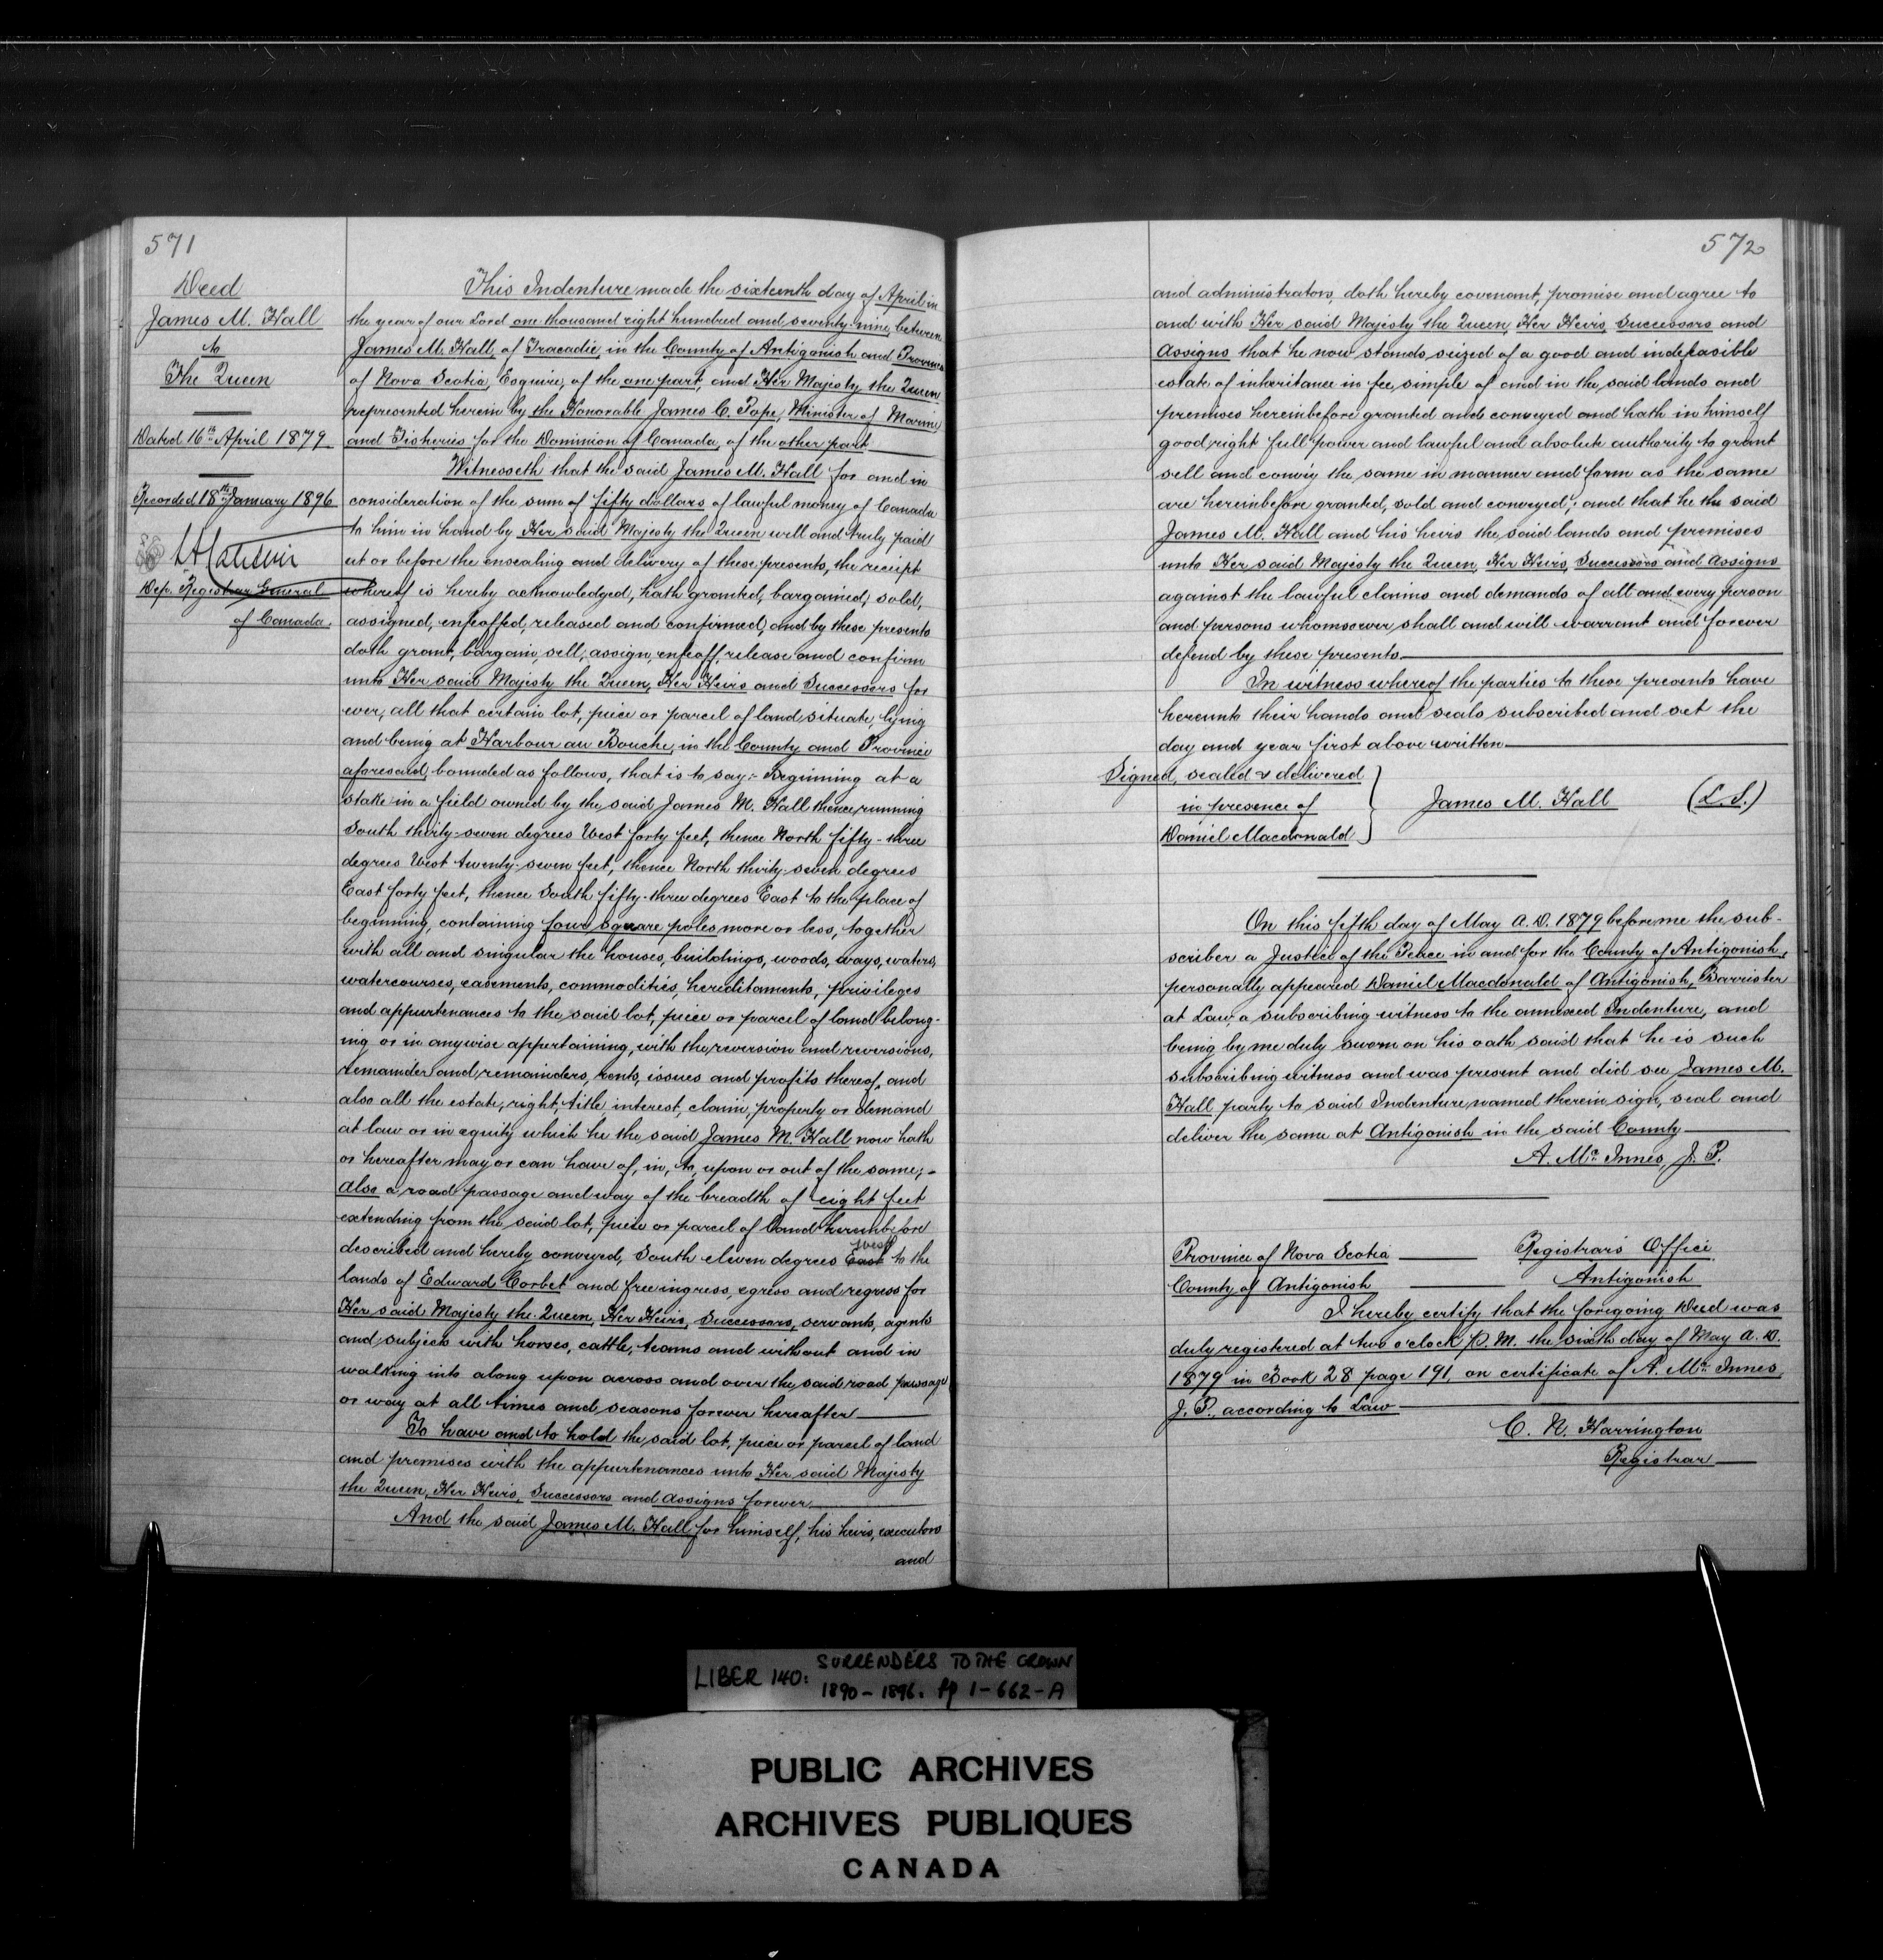 571
Deed
James M. Hall
to
The Queen
Dated 16th April 1879
Recorded 18th January 1896
Dep. Registrar General
of Canada.
This Indenture made the sixteenth day of April in
the year of our Lord one thousand eight hundred and seventy-nine, between
James M. Hall, of Tracadie, in the County of Antigonish and Province
of Nova Scotia, Esquire, of the one part, and Her Majesty the Queen
represented herein by the Honorable James C. Pope, Minister of Marine
and Fisheries for the Dominion of Canada, of the other part
Witnesseth that the said James M. Hall for and in
consideration of the sum of fifty dollars of lawful money of Canada
to him in hand by Her said Majesty the Queen well and truly paid
at or before the ensealing and delivery of these presents, the receipt
whereof is hereby acknowledged, hath granted, bargained, sold,
assigned, enfeoffed, released and confirmed, and by these presents
doth grant, bargain, sell, assign, enfeoff, release and confirm
unto Her said Majesty the Queen, Her Heirs and Successors for
ever, all that certain lot, piece or parcel of land situate, lying
and being at Harbour au Bouche, in the County and Province
aforesaid, bounded as follows, that is to say:- Beginning at a
stake in a field owned by the said James M. Hall thence running
South thirty-seven degrees West forty feet, thence North fifty-three
degrees West twenty-seven feet, thence North thirty-seven degrees
East forty feet, thence South fifty-three degrees East to the place of
beginning, containing four square poles more or less, together
with all and singular the houses, buildings, woods, ways, waters,
watercourses, easements, commodities, hereditaments, privileges
and appurtenances to the said lot, piece or parcel of land belong-
ing or in anywise appertaining, with the reversion and reversions,
remainder and remainders, rents, issues and profits thereof, and
also all the estate, right, title, interest, claim, property or demand
at law or in equity which he the said James M. Hall now hath
or hereafter may or can have of, in, to, upon or out of the same;-
Also a road passage and way of the breadth of eight feet
extending from the said lot, piece or parcel of land hereinbefore
described and hereby conveyed, South eleven degrees East West to the
lands of Edward Corbet and free ingress, egress and regress for
Her said Majesty the Queen, Her Heirs, Successors, servants, agents
and subjects with horses, cattle, teams and without and in
walking into along upon across and over the said road passage
or way at all times and seasons forever hereafter
To have and to hold the said lot, piece or parcel of land
and premises with the appurtenances unto Her said Majesty
the Queen, Her Heirs, Successors and Assigns forever
And the said James M. Hall for himself, his heirs, executors
and
572
and administrators, doth hereby covenant, promise and agree to
and with Her said Majesty the Queen, Her Heirs, Successors and
Assigns that he now stands seized of a good and indefeasible
estate of inheritance in fee simple of and in the said lands and
premises hereinbefore granted and conveyed and hath in himself
good right full power and lawful and absolute authority to grant
sell and convey the same in manner and form as the same
are hereinbefore granted, sold and conveyed; and that he the said
James M. Hall and his heirs the said lands and premises
unto Her said Majesty the Queen, Her Heirs, Successors and Assigns
against the lawful claims and demands of all and every person
and persons whomsoever, shall and will warrant and forever
defend by these presents
In witness whereof the parties to these presents have
hereunto their hands and seals subscribed and set the
day and year first above written
Signed, sealed & delivered
in presence of
Daniel Macdonald
James M. Hall (L.S.)
On this fifth day of May A.D. 1879 before me the sub-
scriber a Justice of the Peace in and for the County of Antigonish,
personally appeared Daniel Macdonald of Antigonish, Barrister
at Law, a subscribing witness to the annexed Indenture, and
being by me duly sworn on his oath said that he is such
subscribing witness and was present and did see James M.
Hall party to said Indenture, named therein sign, seal and
deliver the same at Antigonish in the said County
A. Mc Innes, J. P.
Province of Nova Scotia Registrar's Office
County of Antigonish Antigonish
I hereby certify that the foregoing Deed was
duly registered at two o'clock P.M. the sixth day of May A.D.
1879 in Book 28 page 191, on certificate of A. Mc Innes,
J. P., according to Law
C. N. Harrington
Registrar
LIBER 140: SURRENDERS TO THE CROWN
1890-1896. pp 1-662-A
PUBLIC ARCHIVES
ARCHIVES PUBLIQUES
CANADA